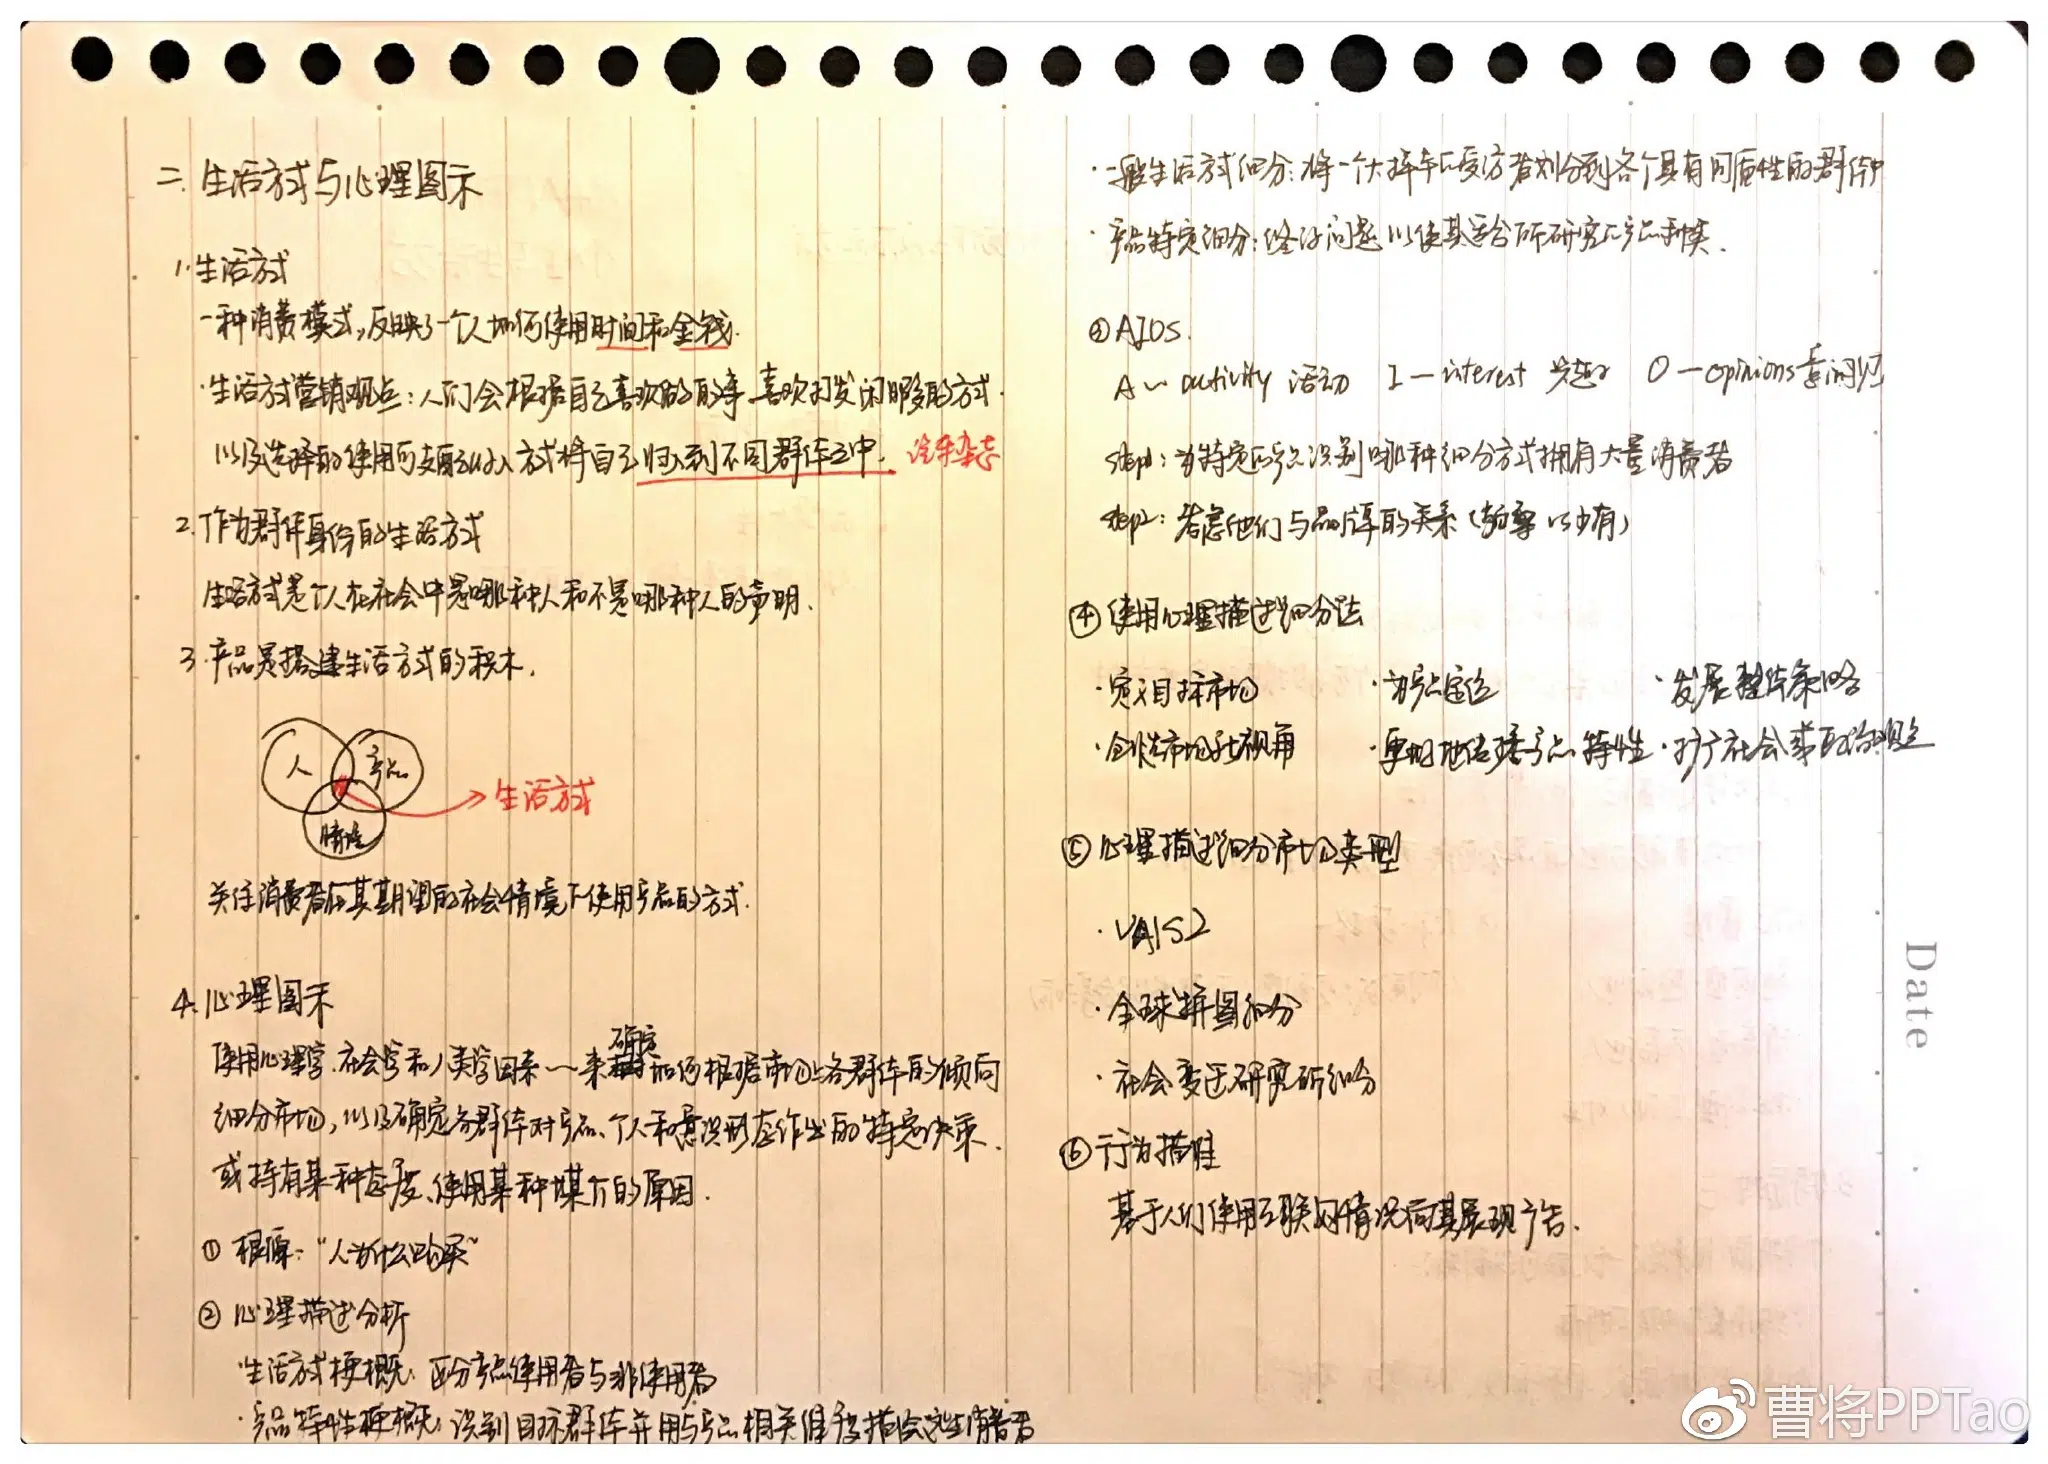 二. 生活方式与心理图示
1. 生活方式
一种消费模式,反映了一个人如何使用时间和金钱.
·生活方式营销观点:人们会根据自己喜欢做的事、喜欢打发闲暇的方式.
以及选择的使用可支配收入方式将自己归入到不同群体之中. 汽车杂志
2. 作为群体身份的生活方式
生活方式是个人在社会中是哪种人和不是哪种人的声明.
3. 产品是搭建生活方式的积木.
人 产品
情境
生活方式
关注消费者在其期望的社会情境下使用产品的方式.
4. 心理图示
确定
使用心理学、社会学和人类学因素——来如何根据市场上各群体的倾向
细分市场,以及确定各群体对产品、个人和意识形态作出的特定决策.
或持有某种态度、使用某种媒介的原因.
① 根源:“人为什么购买”
② 心理描述分析
·生活方式梗概:区分产品使用者与非使用者
·产品特性梗概:识别目标群体并用与产品相关维度描绘这些消费者
·一般生活方式细分:将一个大样本的受访者划分到各个具有同质性的群体中
·产品特定细分:修改问题以使其适合所研究的产品种类.
③ AIOs.
A — activity 活动 I — interest 兴趣 O — opinions 意见
step1:为特定产品识别哪种细分方式拥有大量消费者
step2:考虑他们与品牌的关系
④ 使用心理描述细分法
·定义目标市场 ·为产品定位 ·发展整体策略
·创造市场新视角 ·更好地传播产品特性 ·推广社会或政治观点
⑤ 心理描述细分市场类型
·VALS2
·全球拼图细分
·社会变迁研究所细分
⑥ 行为描准
基于人们使用互联网情况向其展现广告.
Date
曹将PPTao